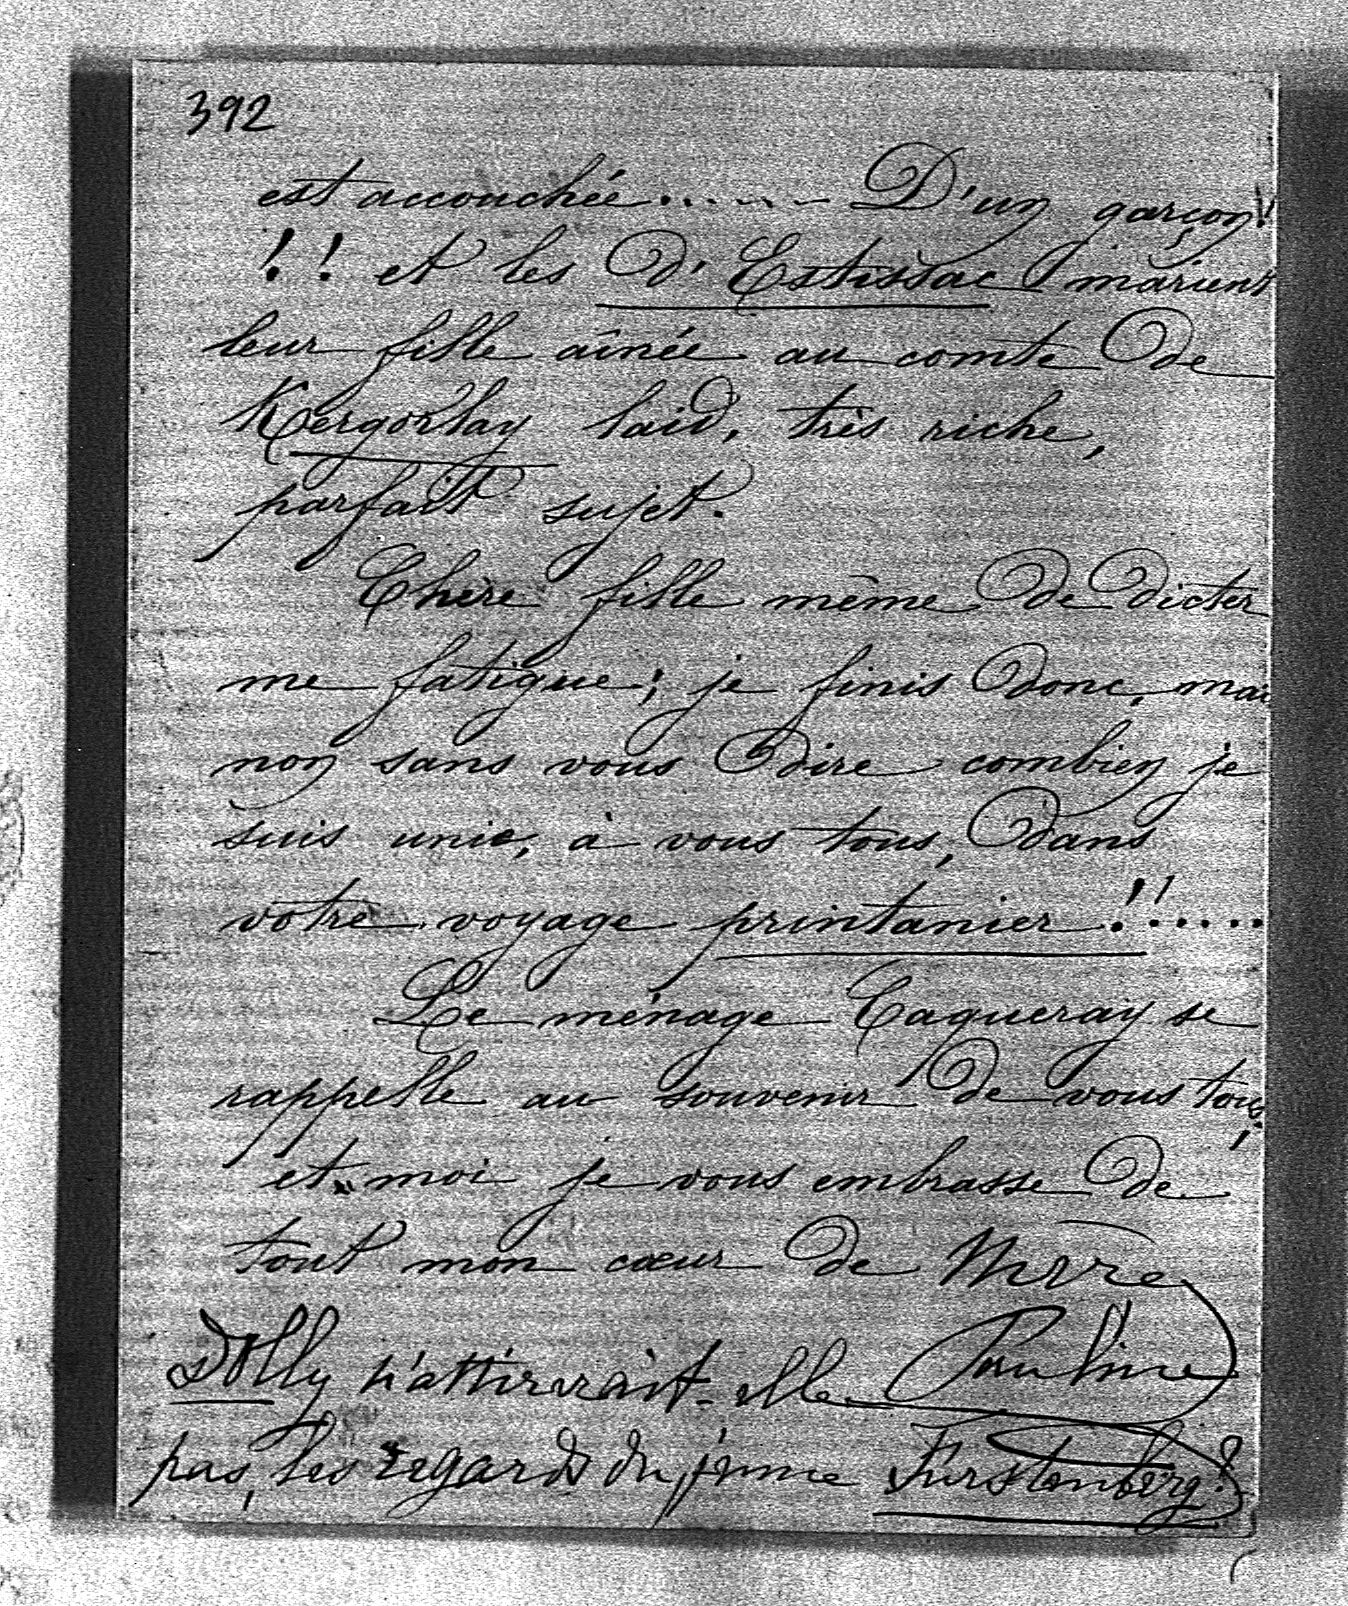 392
est accouchée....... D'un garçon!
!! et les D'Estissac marient
leur fille aînée au comte De
Kergorlay laid, très riche,
parfait sujet.
Chère fille même De Dicter
me fatigue; je finis Donc, mais
non sans vous Dire combien je
suis unie, à vous tous, Dans
votre voyage printanier!!.....
Le ménage Caqueray se
rappelle au souvenir De vous tous,
et moi je vous embrasse De
tout mon cœur de Mère
Pauline
Dolly n'attirerait-elle
pas, les regards du jeune Furstenberg?